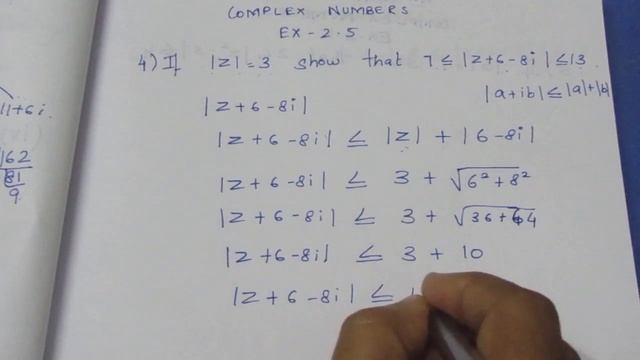 COMPLEX NUMBERS
EX-2.5
4) If |z|=3 show that 7 ≤ |z+6-8i| ≤13.
|a+ib|≤|a|+|b|
|z+6-8i|
|z+6-8i| ≤ |z| + |6-8i|
|z+6-8i| ≤ 3 + √6²+8²
|z+6-8i| ≤ 3 + √36+64
|z+6-8i| ≤ 3 + 10
|z+6-8i| ≤
11+6i.
162
81
9